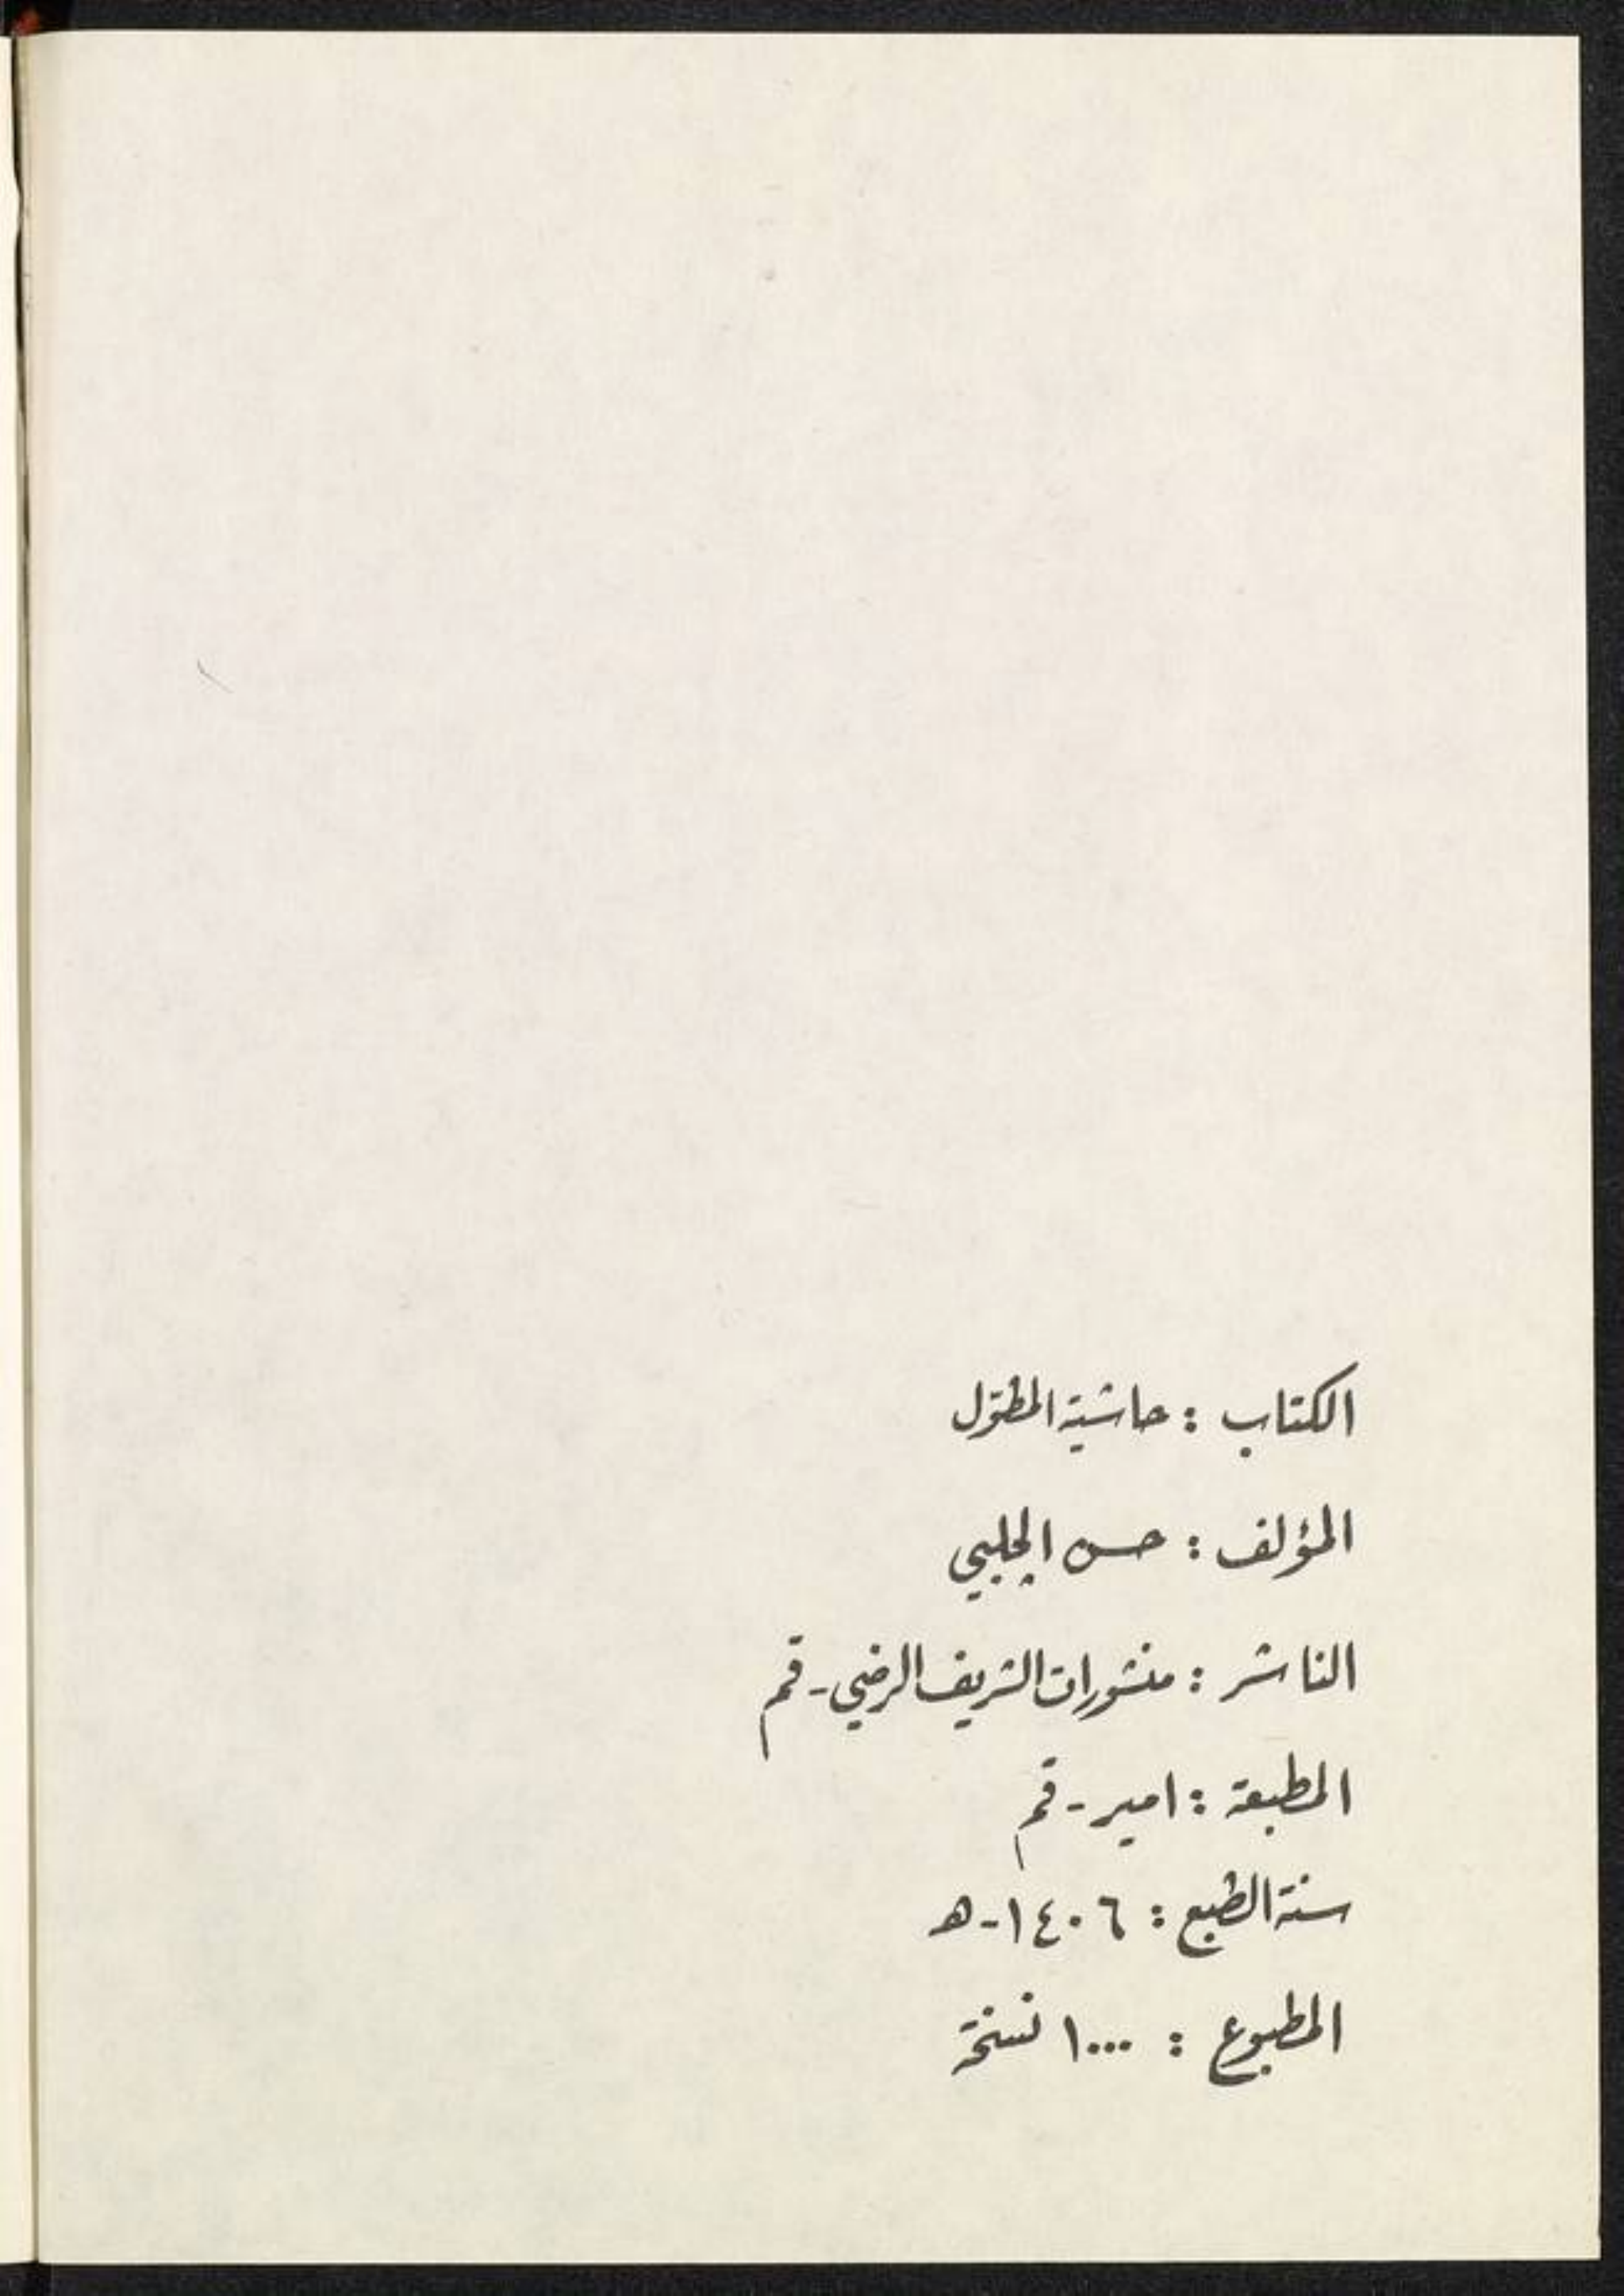 الكتاب : حاشية المطوّل
المؤلف : حسن الچلبي
الناشر : منشورات الشريف الرضي - قم
المطبعة : امير - قم
سنة الطبع : ١٤٠٦ - ه
المطبوع : ١٠٠٠ نسخة